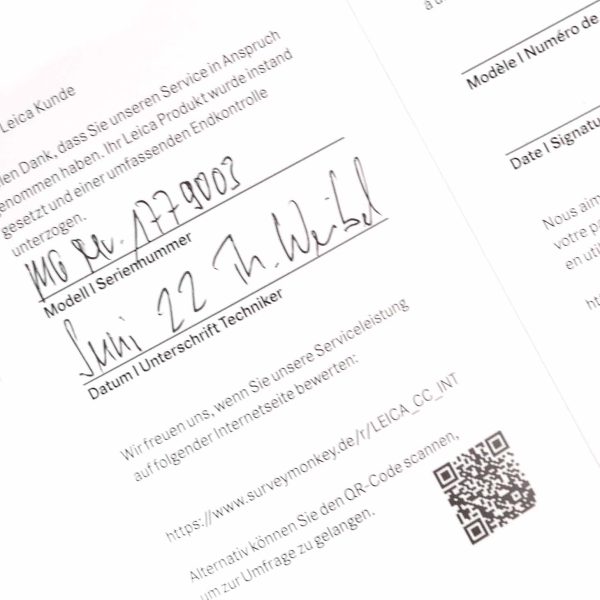 Leica Kunde
len Dank, dass Sie unseren Service in Anspruch
genommen haben. Ihr Leica Produkt wurde instand
gesetzt und einer umfassenden Endkontrolle
unterzogen.
M6 Nr. 1779003
Modell | Seriennummer
Juni 22 Th. Weibel
Datum | Unterschrift Techniker
Wir freuen uns, wenn Sie unsere Serviceleistung
auf folgender Internetseite bewerten:
https://www.surveymonkey.de/r/LEICA_CC_INT
Alternativ können Sie den QR-Code scannen,
um zur Umfrage zu gelangen.
Modèle | Numéro de
Date | Signatu
Nous aim
votre p
en uti